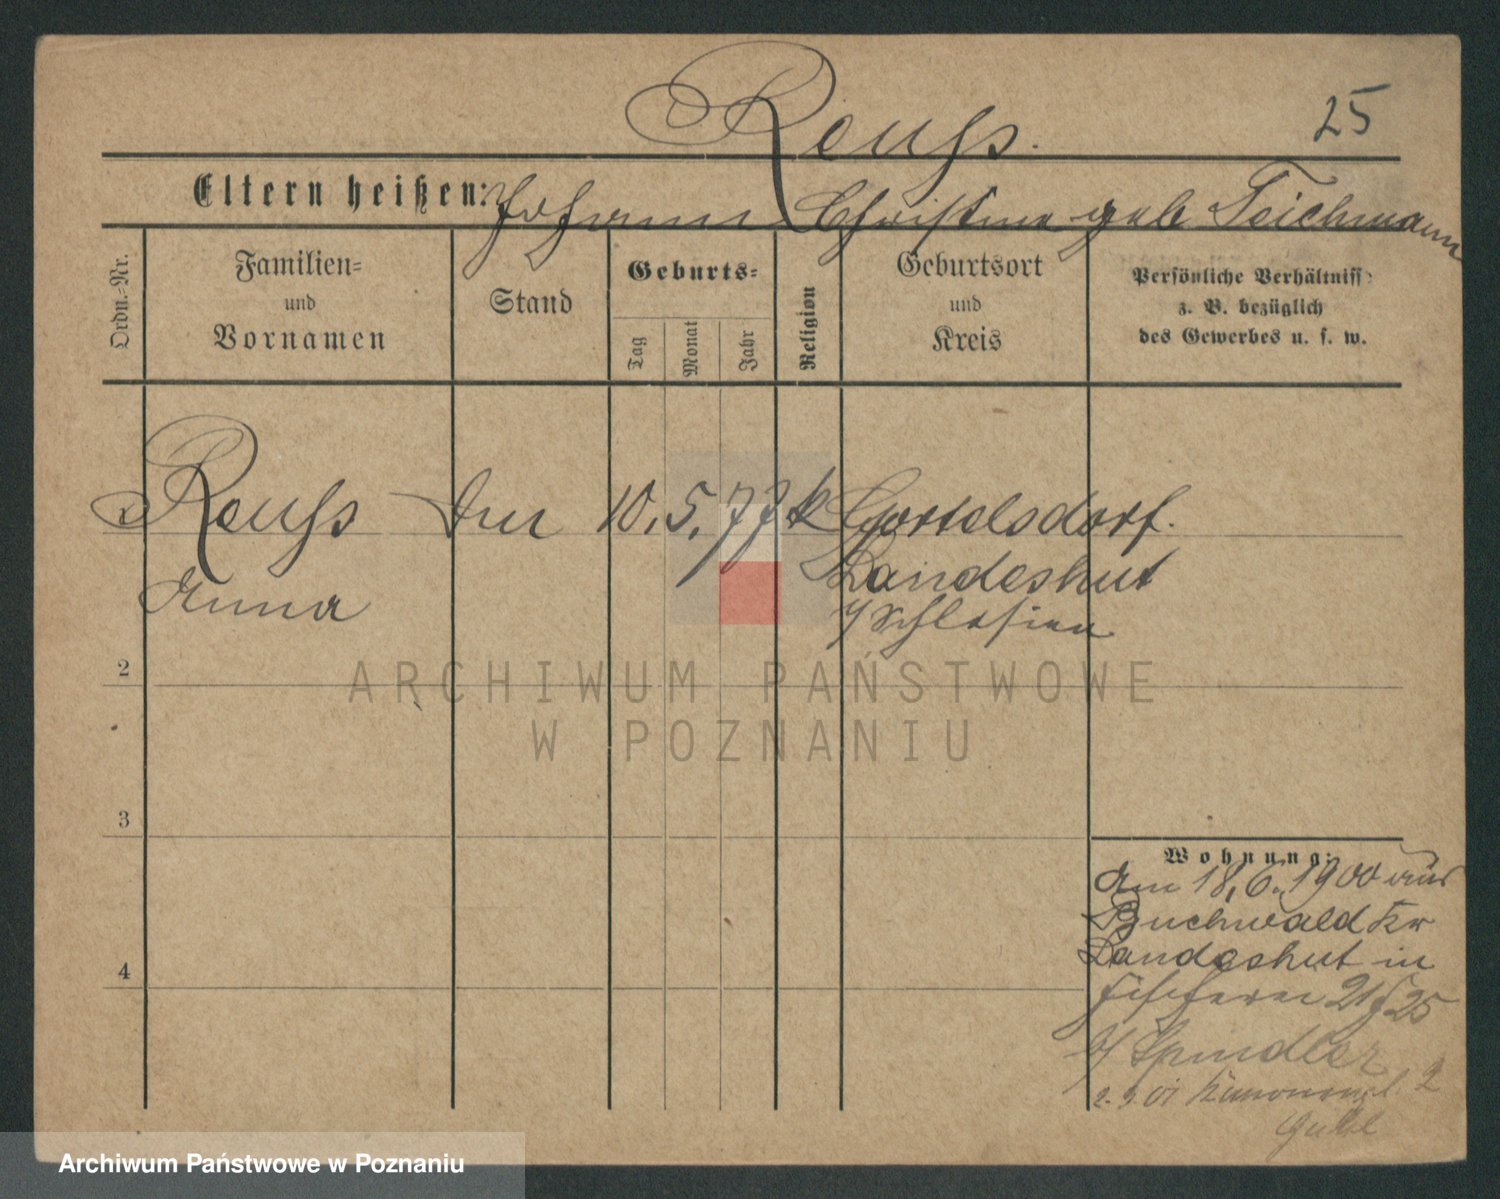 Reuss.
25
Eltern heißen: Johann Christina geb Teichmann
Ordn.-Nr.
Familien-
und
Vornamen
Stand
Geburts-
Tag
Monat
Jahr
Religion
Geburtsort
und
Kreis
Persönliche Verhältniss
z. B. bezüglich
des Gewerbes u. s. w.
Reuss 10. 5. 77 k Gortelsdorf.
Anna Landeshut
i/ Schlesien
2
ARCHIWUM PAŃSTWOWE
W POZNANIU
3
Wohnung:
Am 18.6.1900 aus
Buchwald Kr
Landeshut in
21/25
b/ Spindler
2.9.01 2
4
Archiwum Państwowe w Poznaniu